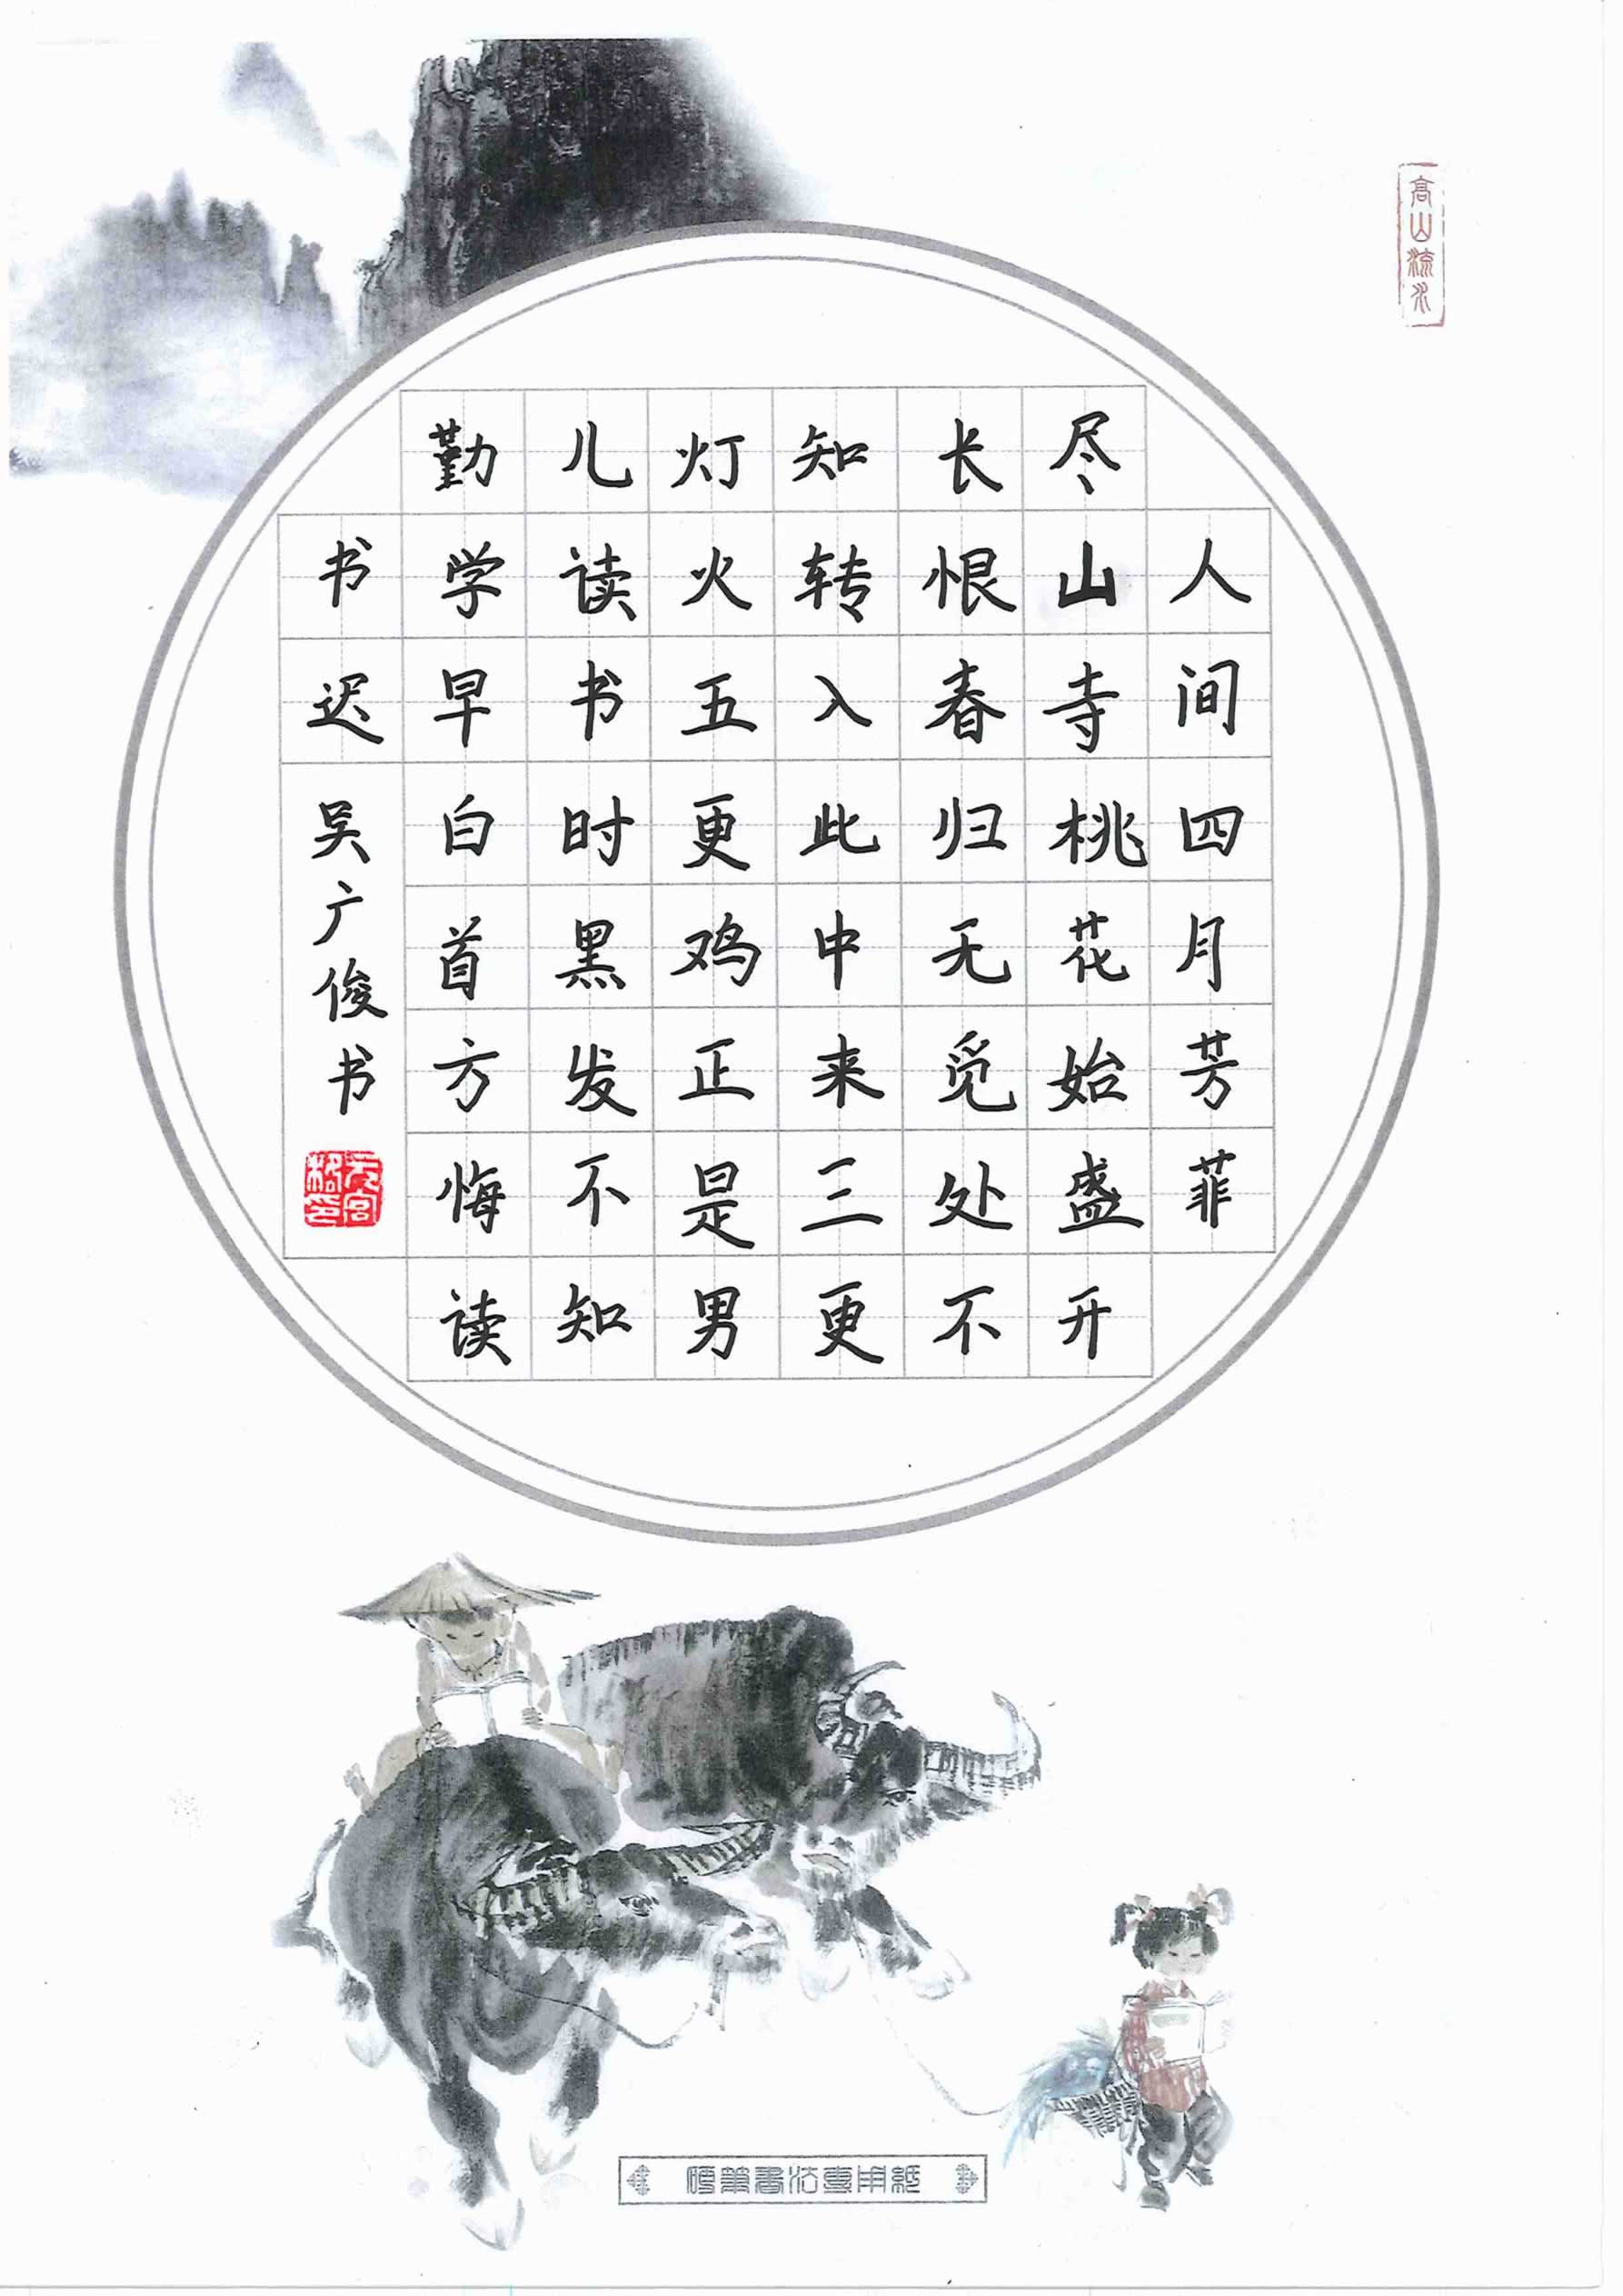 高山流水
人间四月芳菲
尽山寺桃花始盛开
长恨春归无觅处不
知转入此中来三更
灯火五更鸡正是男
儿读书时黑发不知
勤学早白首方悔读
书迟
吴广俊书
硬筆書法專用紙